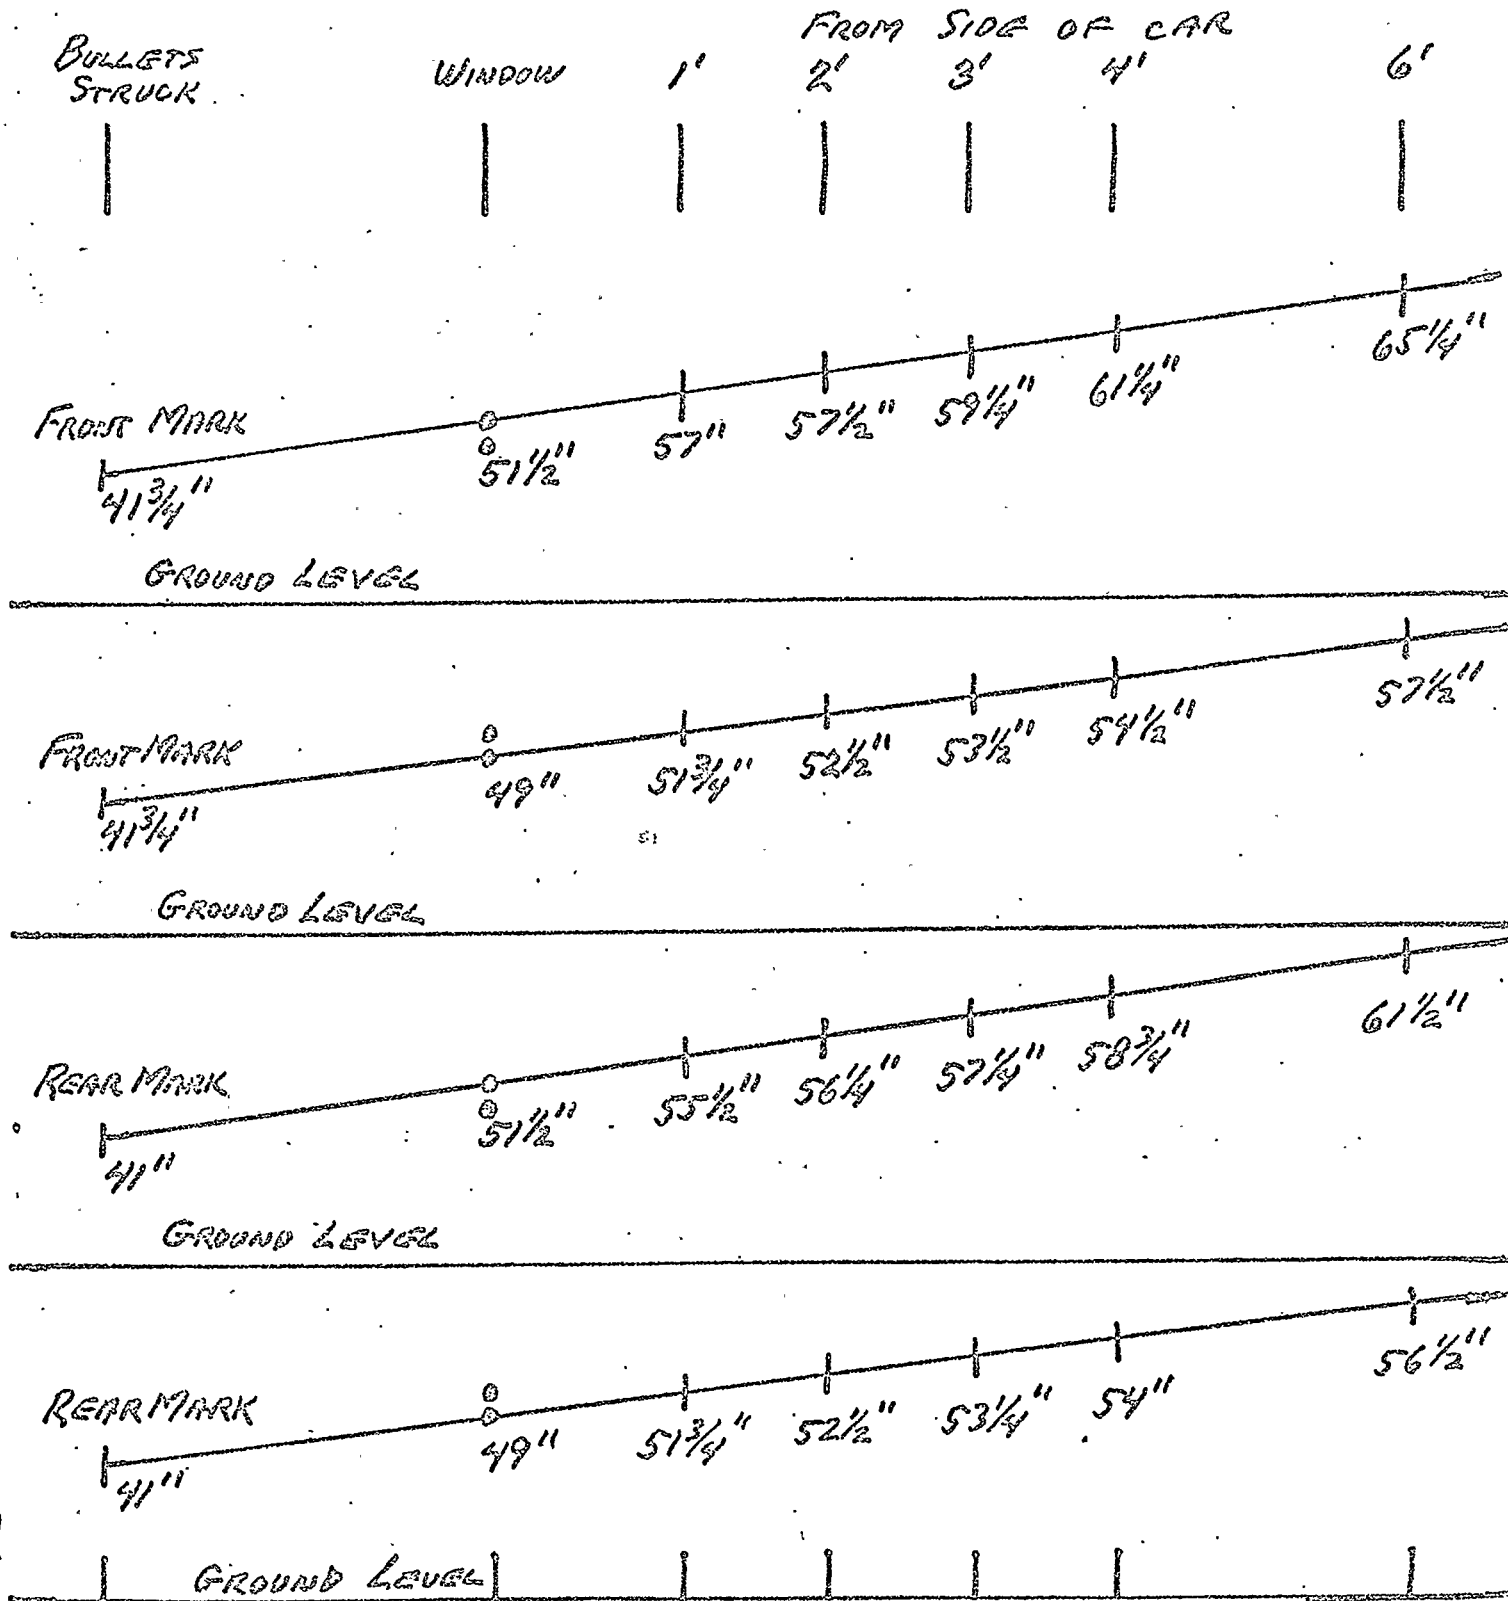 FROM SIDE OF CAR
BULLETS STRUCK WINDOW 1' 2' 3' 4' 6'
FRONT MARK
41 3/4" 51 1/2" 57" 57 1/2" 59 1/4" 61 1/4" 65 1/4"
GROUND LEVEL
FRONT MARK
41 3/4" 49" 51 3/4" 52 1/2" 53 1/2" 54 1/2" 57 1/2"
GROUND LEVEL
REAR MARK
41" 51 1/2" 55 1/2" 56 1/4" 57 1/4" 58 3/4" 61 1/2"
GROUND LEVEL
REAR MARK
41" 49" 51 3/4" 52 1/2" 53 1/4" 54" 56 1/2"
GROUND LEVEL